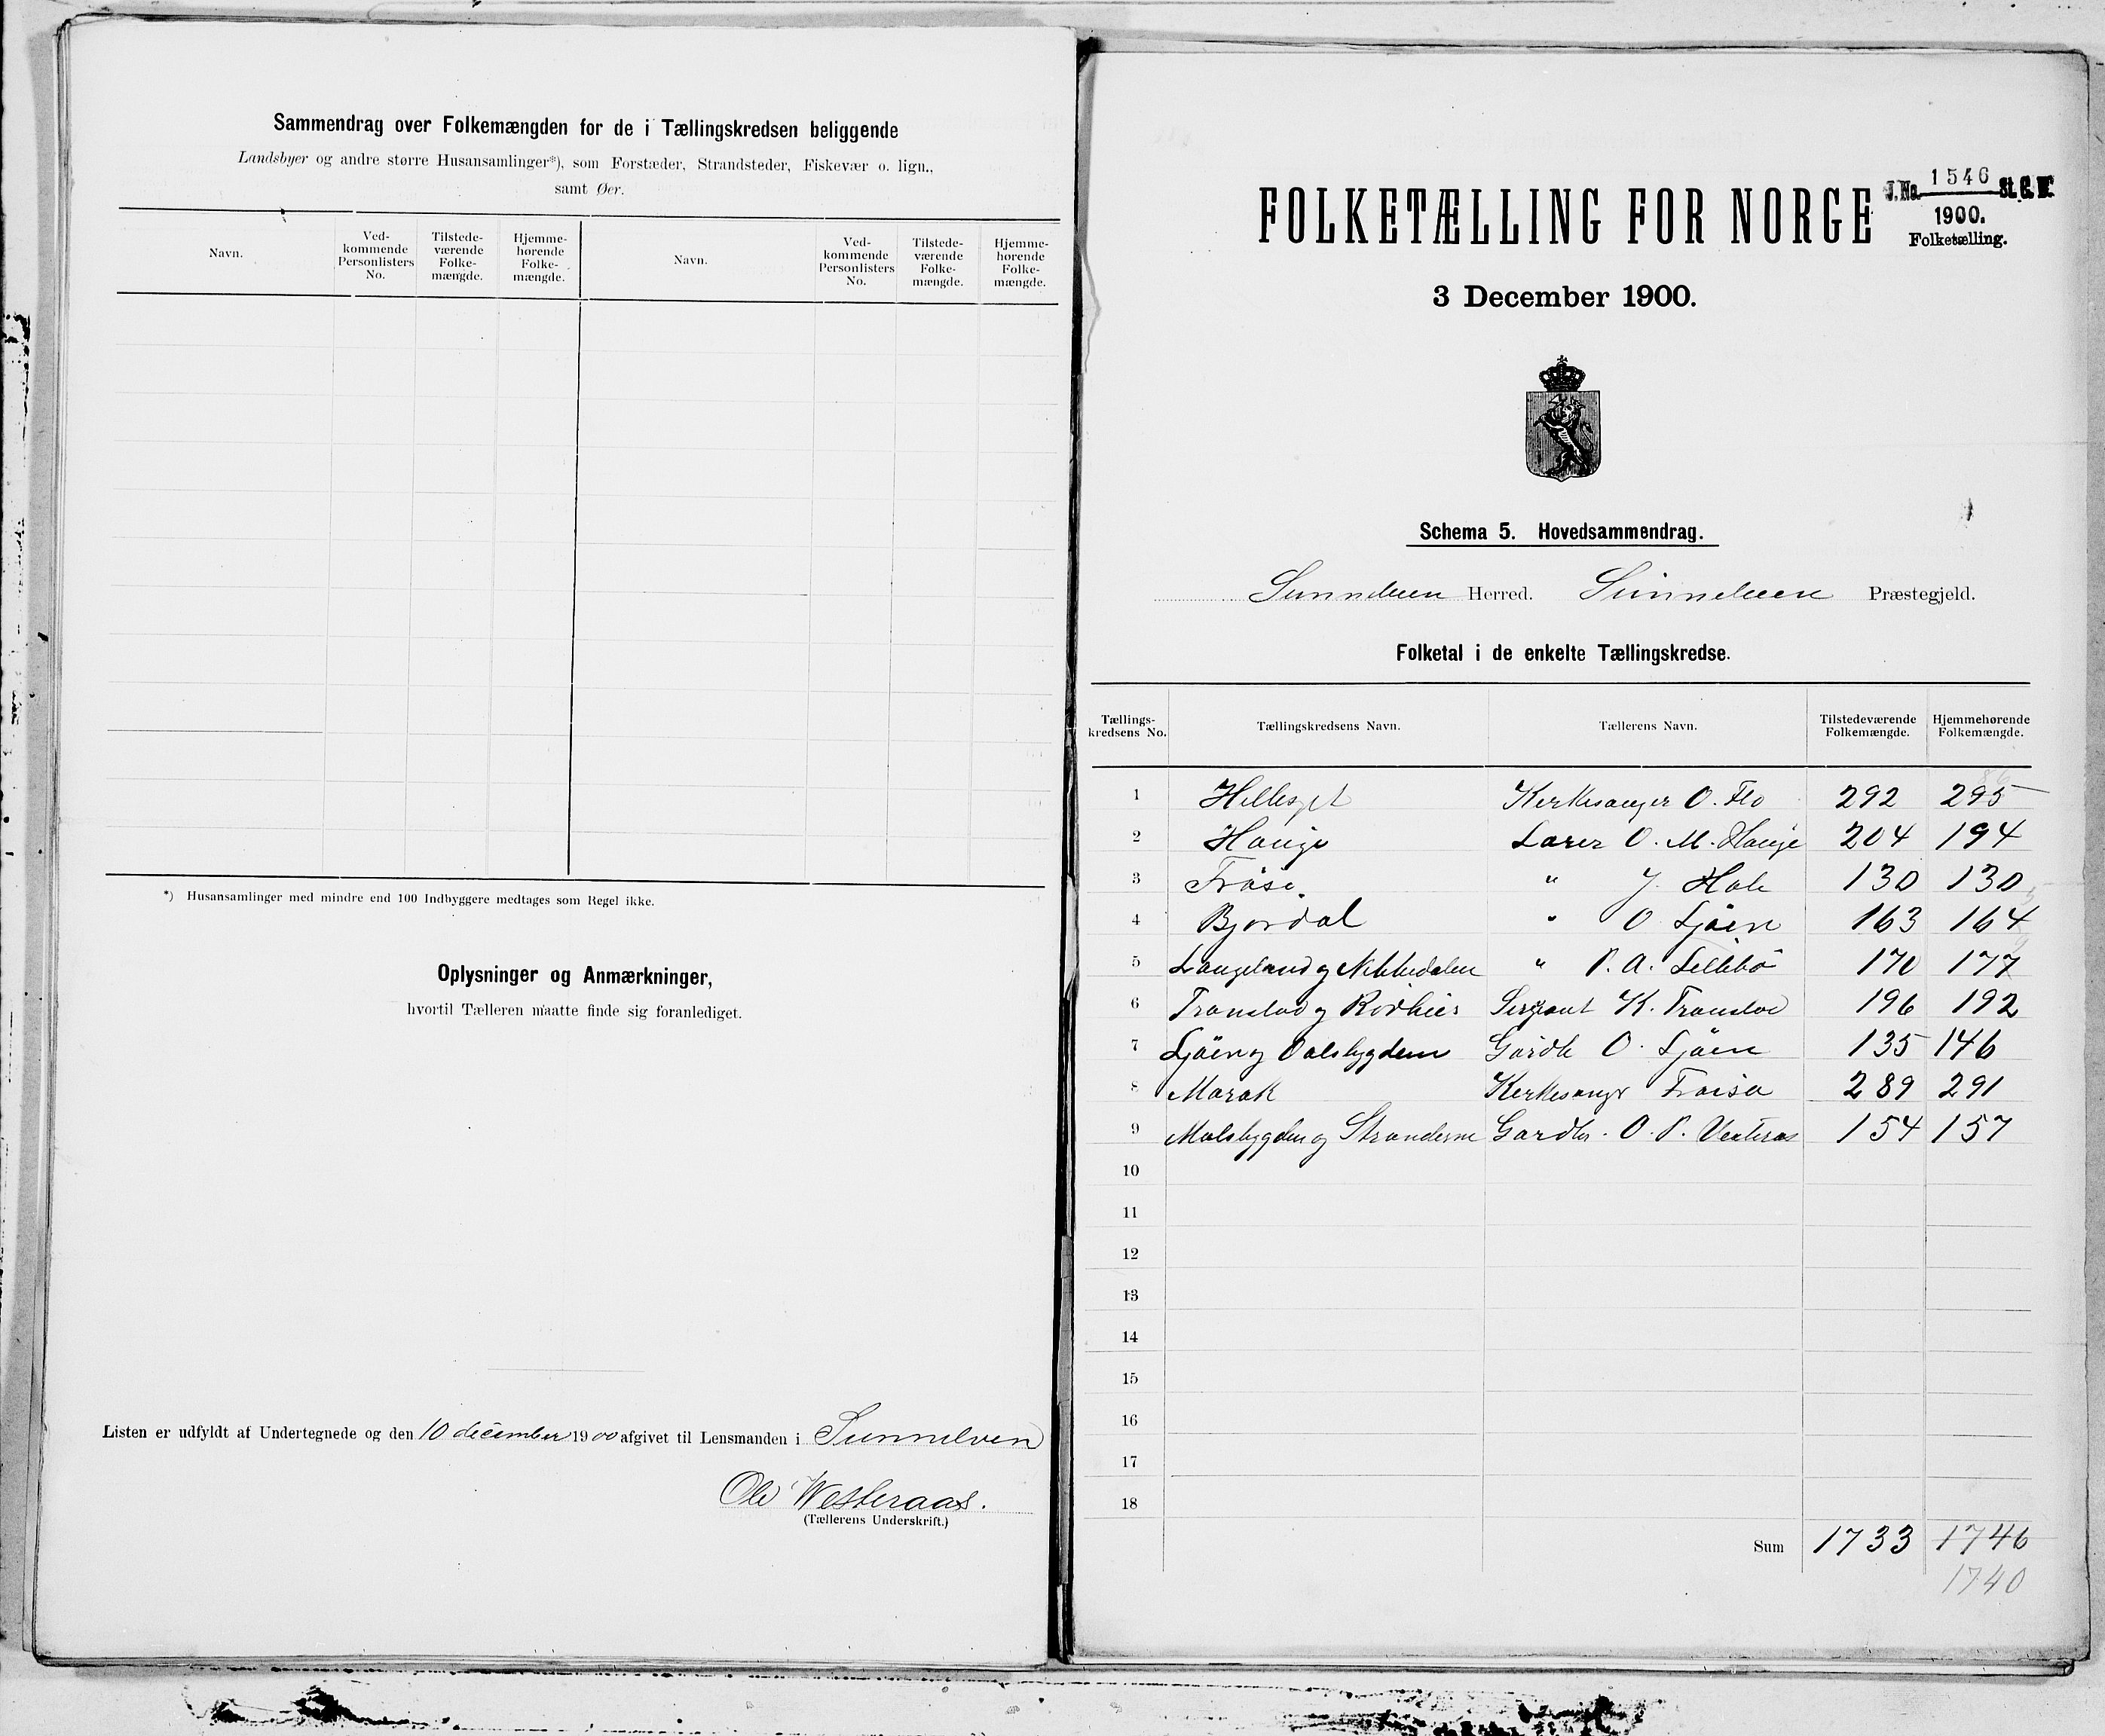 Sammendrag over Folkemængden for de i Tællingskredsen beliggende
Landsbyer og andre større Husansamlinger*), som Forstæder, Strandsteder, Fiskevær o. lign.,
samt Øer.
Navn. Ved-kommende Personlisters No. Tilstede-værende Folke-mængde. Hjemme-hørende Folke-mængde. Navn. Ved-kommende Personlisters No. Tilstede-værende Folke-mængde. Hjemme-hørende Folke-mængde.
*) Husansamlinger med mindre end 100 Indbyggere medtages som Regel ikke.
Oplysninger og Anmærkninger,
hvortil Tælleren maatte finde sig foranlediget.
Listen er udfyldt af Undertegnede og den 10 december 1900 afgivet til Lensmanden i Sunnelven
Ole Westeraas.
(Tællerens Underskrift.)
FOLKETÆLLING FOR NORGE
J. No. 1546 St. C. B.
1900.
Folketælling.
3 December 1900.
Schema 5. Hovedsammendrag.
Sunnelven Herred. Sunnelven Præstegjeld.
Folketal i de enkelte Tællingskredse.
Tællings-kredsens No. Tællingskredsens Navn. Tællerens Navn. Tilstedeværende Folkemængde. Hjemmehørende Folkemængde.
1 Hellesylt Kirkesanger O. Flo 292 295
2 Hauge Lærer O. M. Hauge 204 194
3 Frøise " J. Hole 130 130
4 Bjørdal " O Ljøen 163 164
5 Langeland og Nibbedalen " P. A. Lillebø 170 177
6 Tronstad og Rødhier Sergeant K. Transtad 196 192
7 Ljøen og Oalsbygden Gardb O. Ljøen 135 146
8 Marak Kirkesanger Frøisa 289 291
9 Malsbygden og Stranderne Gardbr. O. P. Vesteraas 154 157
10
11
12
13
14
15
16
17
18
Sum 1733 1746
1740